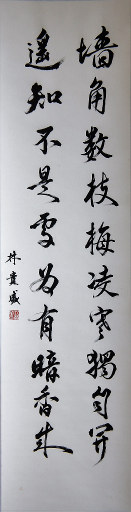 墙角数枝梅凌寒獨自开
遥知不是雪为有暗香来
林貴盛